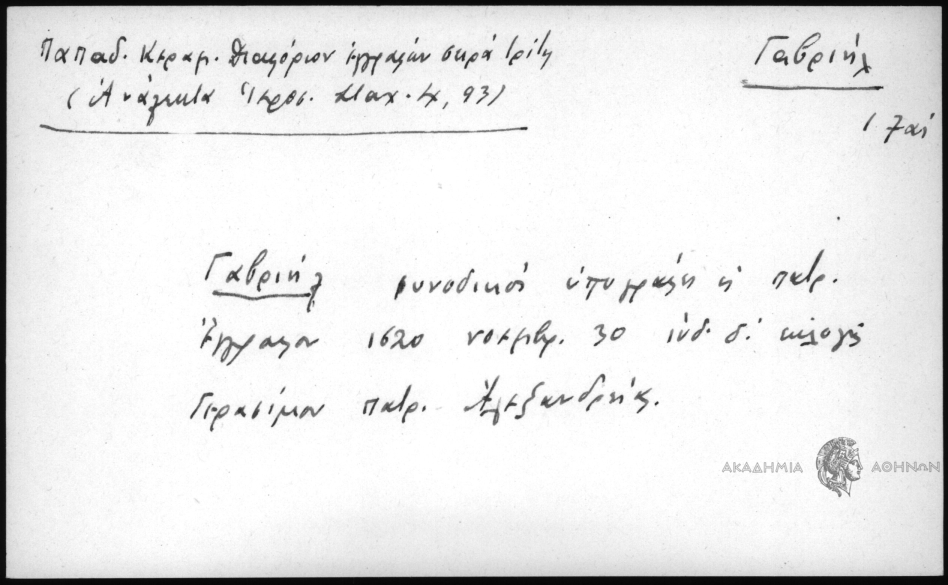 Παπαδ. Κεραμ. Διαφόρων ἐγγράφων σειρά τρίτη
(Ἀνάλεκτα Ἱεροσ. Σταχ. Δ, 93)
Γαβριήλ
17αι
Γαβριήλ συνοδικός ὑπογράφει πατρ.
ἔγγραφον 1620 νοεμβρ. 30 ἰνδ. δ. ἐκλογῆς
Γερασίμου πατρ. Ἀλεξανδρείας.
ΑΚΑΔΗΜΙΑ ΑΘΗΝΩΝ